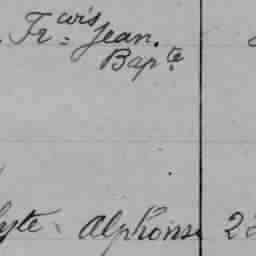 Fr=çois Jean.
Bapte
lyte. Alphonse 2